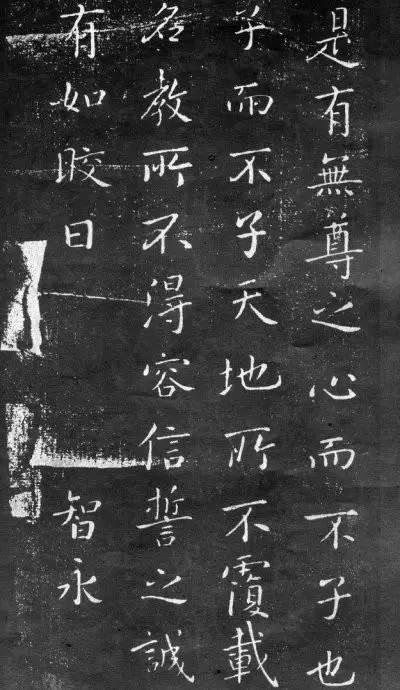 是有無尊之心而不子也
子而不子天地所不覆載
名教所不得容信誓之誠
有如皎日　智永